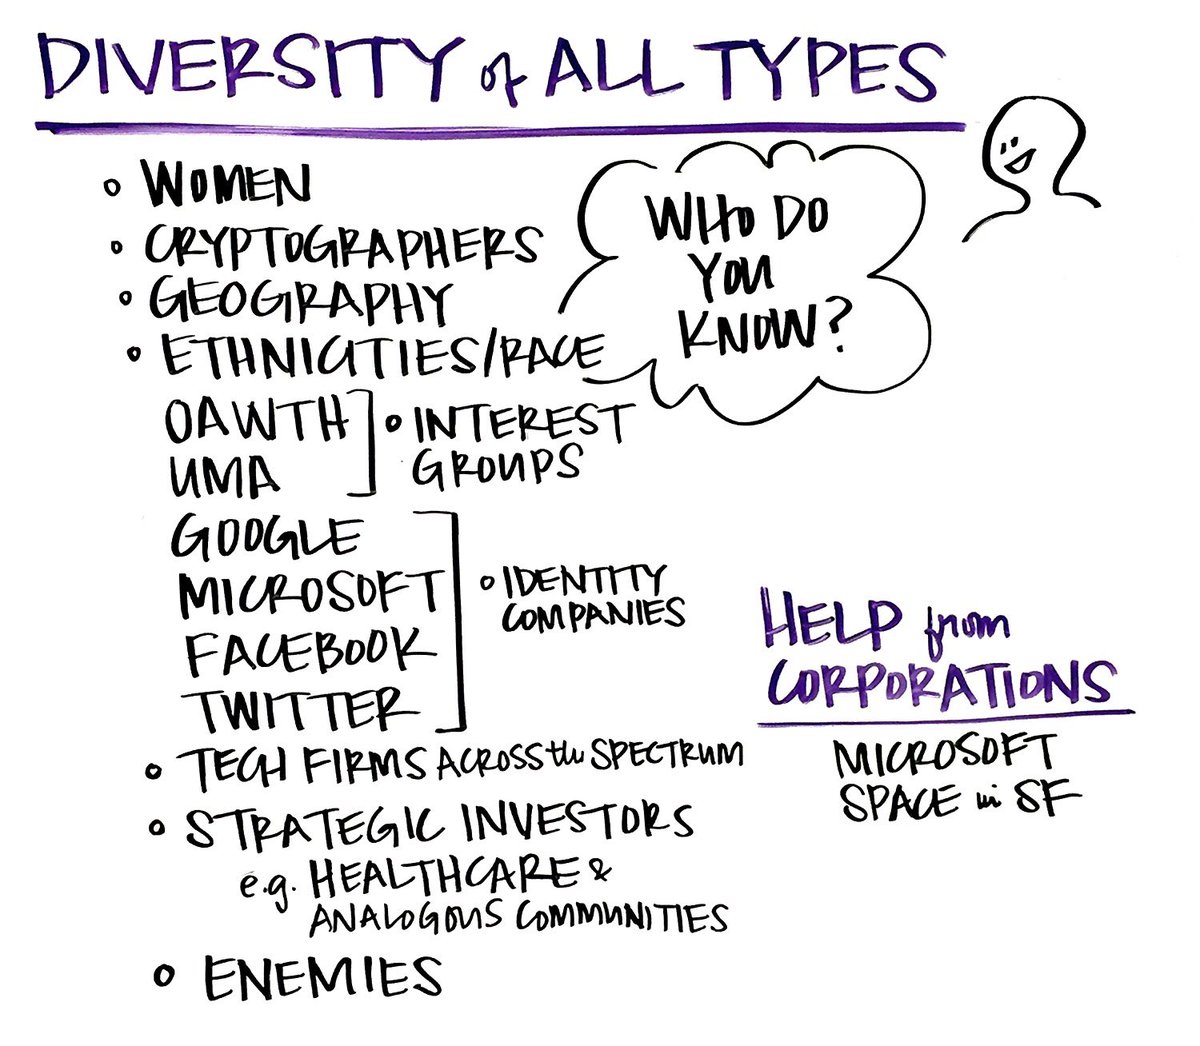 DIVERSITY of ALL TYPES
WOMEN
CRYPTOGRAPHERS
GEOGRAPHY
ETHNICITIES/RACE
OAWTH
UMA
INTEREST
GROUPS
GOOGLE
MICROSOFT
FACEBOOK
TWITTER
IDENTITY
COMPANIES
TECH FIRMS ACROSS the SPECTRUM
STRATEGIC INVESTORS
e.g. HEALTHCARE &
ANALOGOUS COMMUNITIES
ENEMIES
WHO DO
YOU
KNOW?
HELP from
CORPORATIONS
MICROSOFT
SPACE in SF